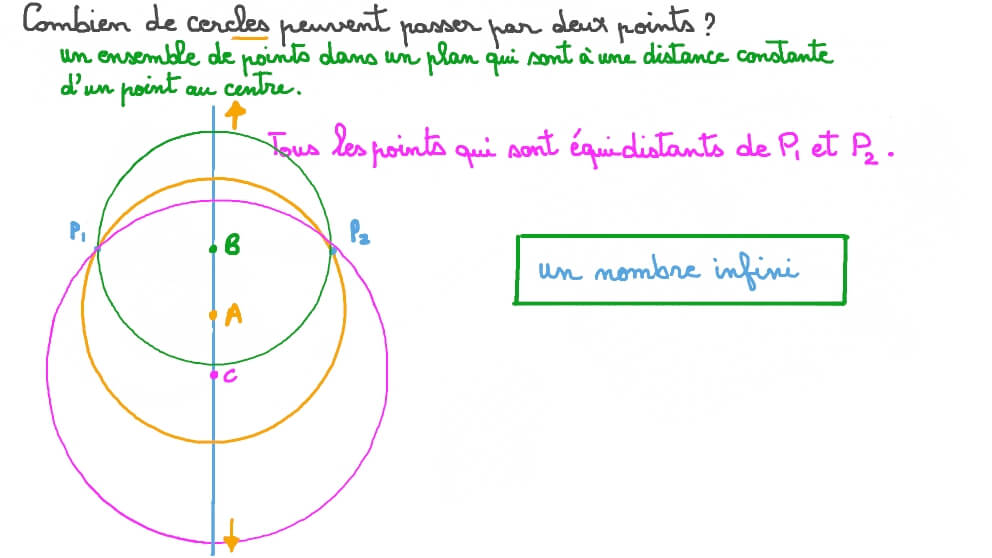 Combien de cercles peuvent passer par deux points ?
un ensemble de points dans un plan qui sont à une distance constante
d'un point au centre.
Tous les points qui sont équidistants de P₁ et P₂.
P₁
P₂
B
un nombre infini
A
C